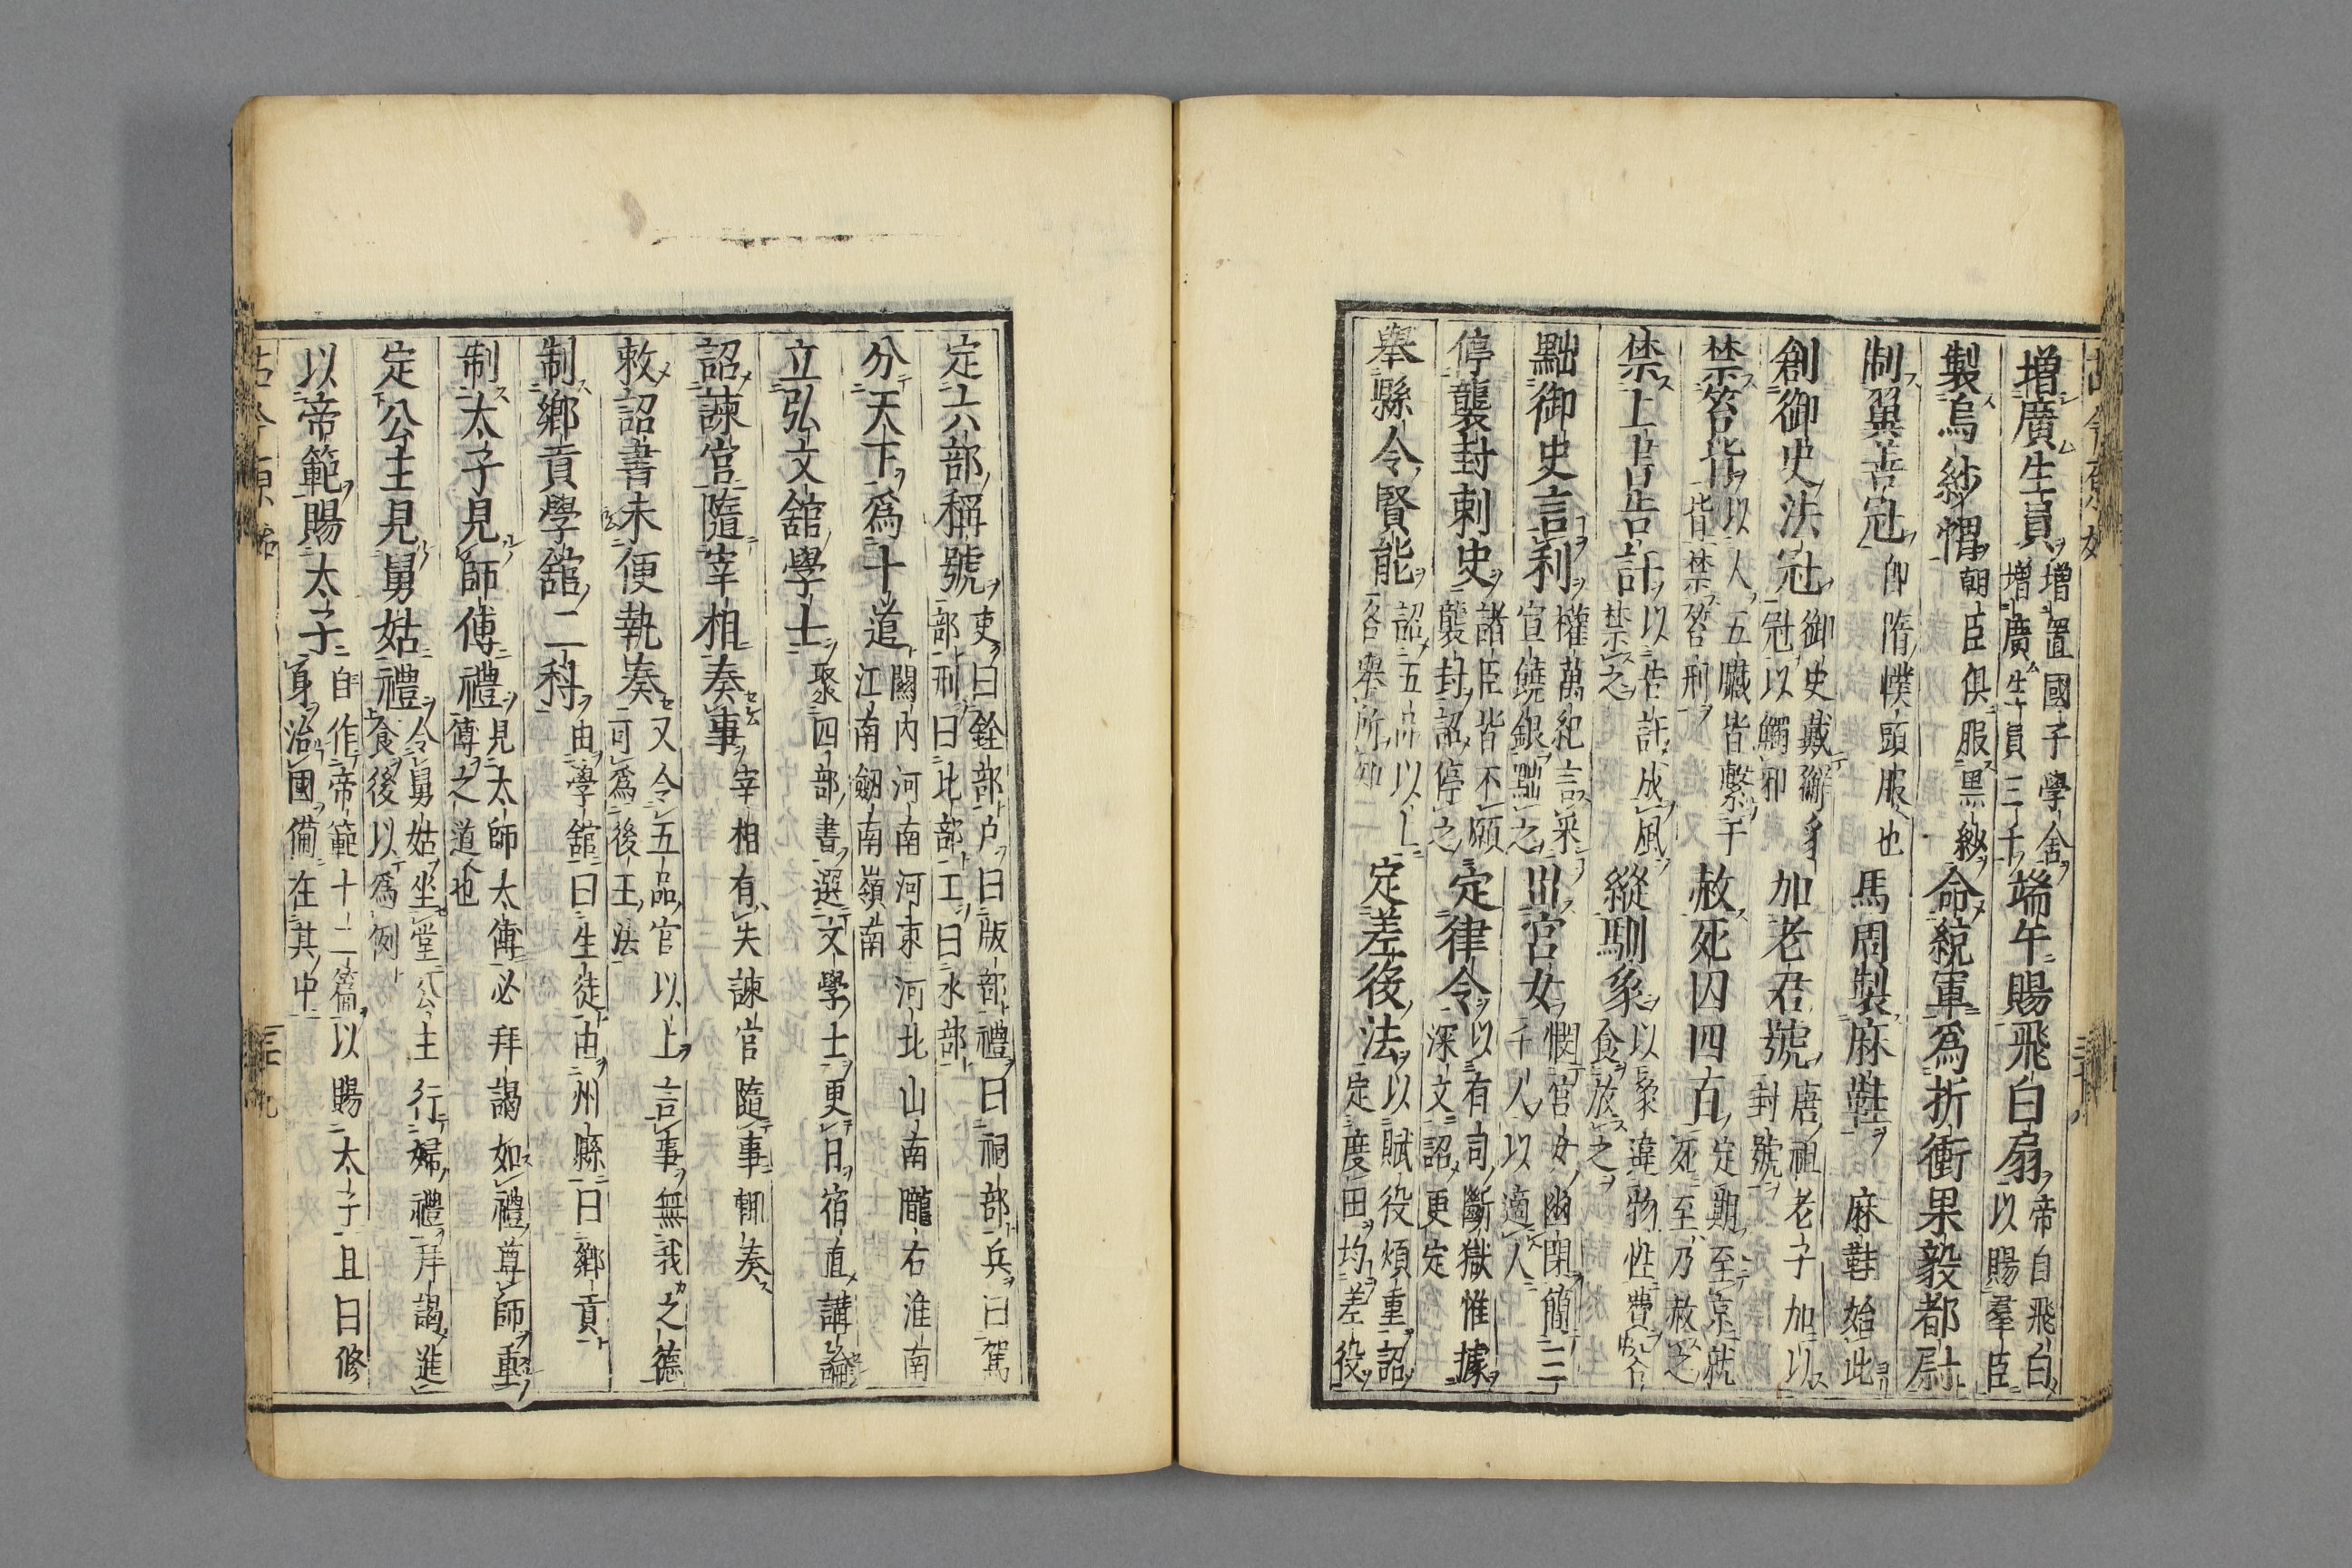 增廣生員增置國子學舍增廣生員三千端午賜飛白扇帝自飛白以賜羣臣
製烏紗帽朝臣俱服黒紗命統軍為折衝果毅都尉
制翼善冠即隋幞頭服也馬周製麻鞋麻鞋始此
創御史法冠御史戴獬豸冠以觸邪加老君號唐祖老子加以封號
禁笞背以人五臟皆繫于背禁笞刑赦死囚四百定期至京就死至乃赦之
禁上書告訐以告訐成風禁之縱馴象以象違物性費食放之
黜御史言利權萬紀言采宣饒銀黜之出宮女憫宮女幽閉簡三千人以適人
停襲封刺史諸臣皆不願襲封詔停之定律令以有司斷獄惟據深文詔更定
舉縣令賢能詔五品以上各舉所知定差役法以賦役煩重詔定度田均差役
定六部稱號吏曰銓部户曰版部禮曰祠部兵曰駕部刑曰比部工曰水部
分天下為十道關内河南河東河北山南隴右淮南江南劒南嶺南
立弘文舘學士聚四部書選文學士更日宿直講論
詔諫官隨宰相奏事宰相有失諫官隨事輒奏
敕詔書未便執奏又令五品官以上言事無我之德可為後王法
制鄉貢學舘二科由學舘曰生徒由州縣曰鄉貢
制太子見師傅禮見太師太傅必拜謁如禮尊師重傅之道也
定公主見舅姑禮令舅姑坐堂公主行婦禮拜謁進食後以為例
以帝範賜太子自作帝範十二篇以賜太子且曰修身治國備在其中